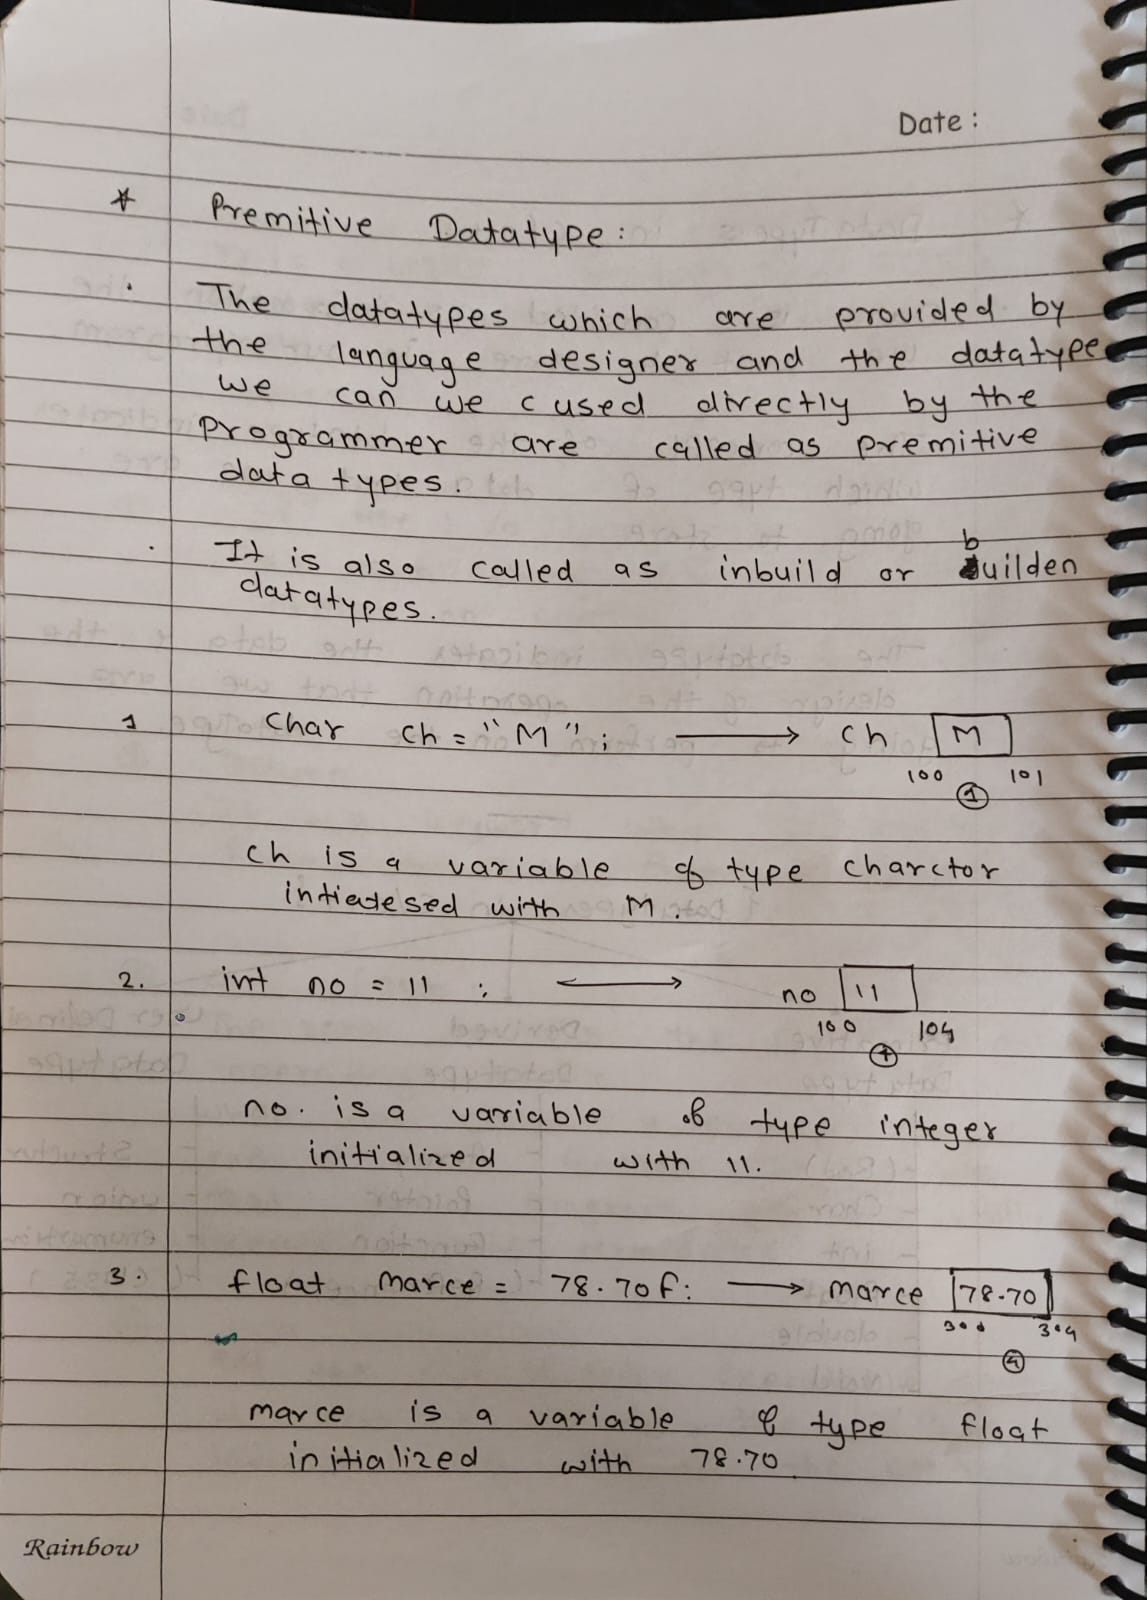 Date :
* Premitive Datatype :
· The datatypes which are provided by
the language designer and the datatype
we can we c used directly by the
Programmer are called as premitive
data types.
· It is also called as inbuild or builden
datatypes.
1 Char Ch = "M" ; → Ch M
100 101
1
Ch is a variable of type charctor
intiatesed with M.
2. int no = 11 ; ↔ no 11
100 104
4
no. is a variable of type integer
initialized with 11.
3. float marce = 78.70f; → marce 78.70
300 304
4
marce is a variable of type float
initialized with 78.70
Rainbow